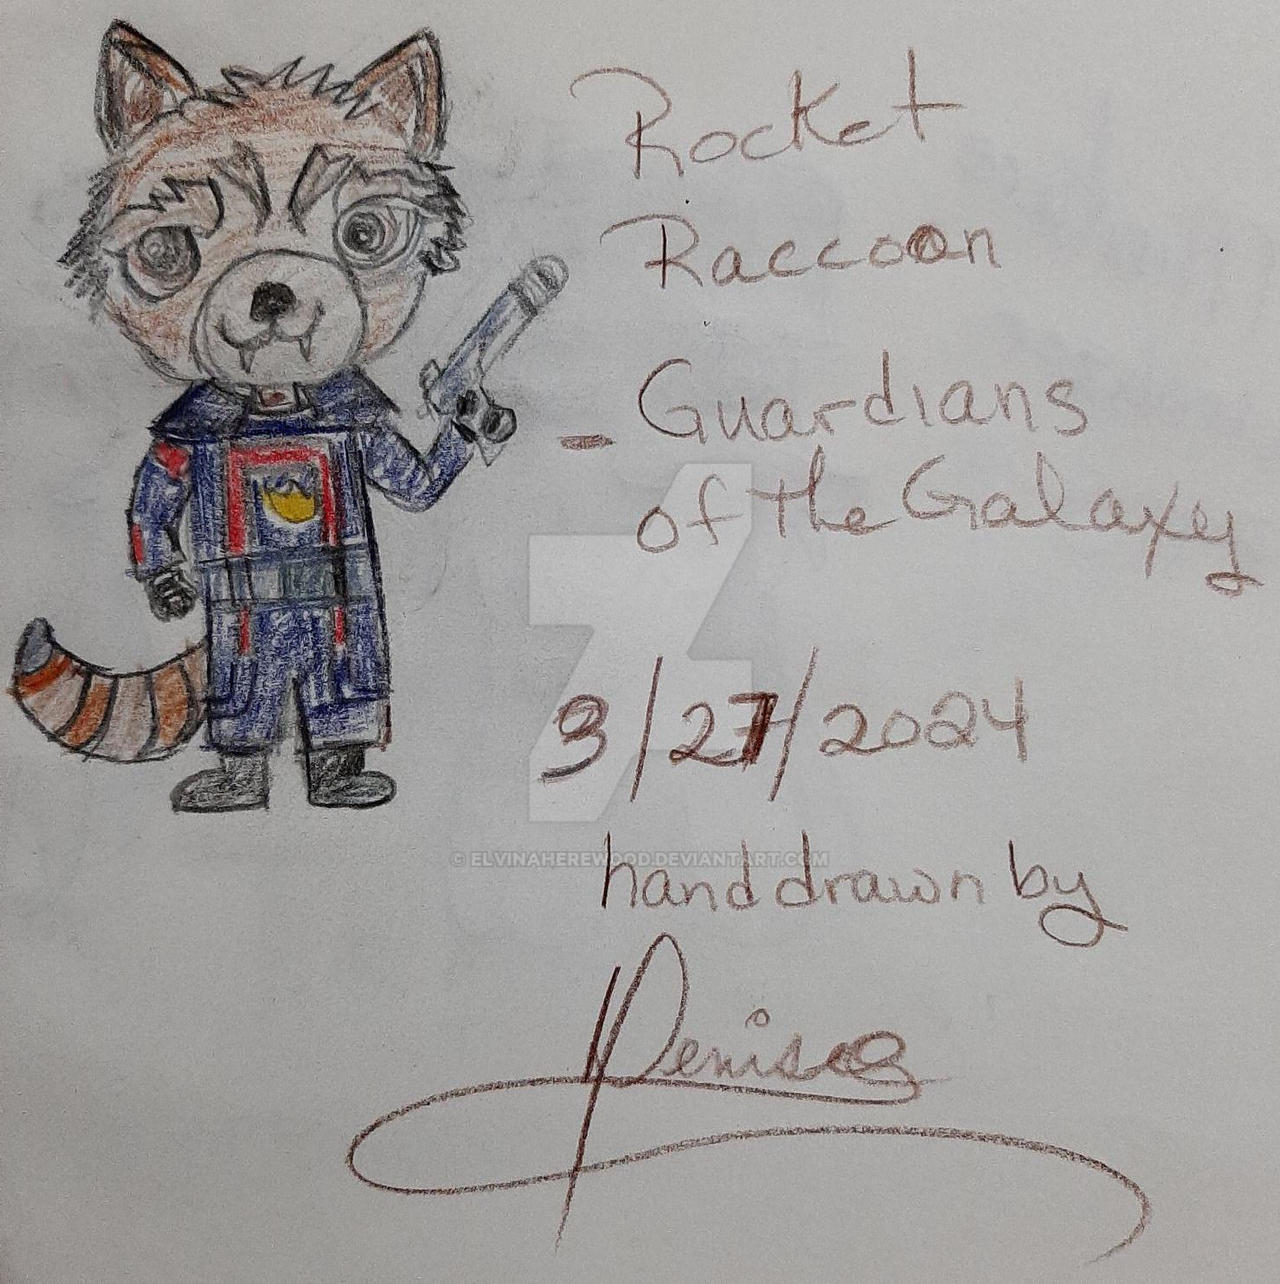 Rocket
Raccoon
- Guardians
of the Galaxy
3/27/2024
© ELVINAHEREWOOD.DEVIANTART.COM
hand drawn by